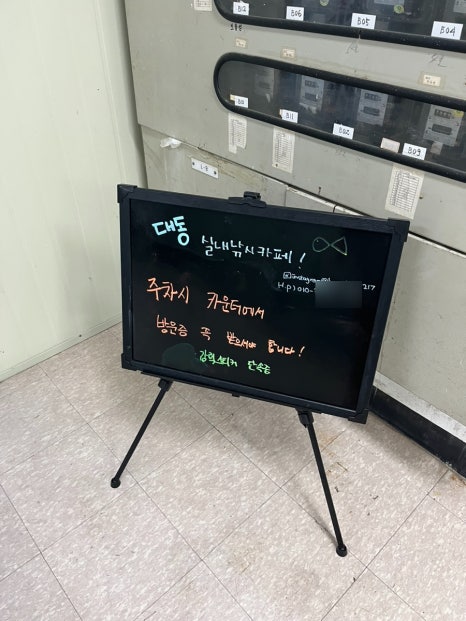 B12
B06
B05
B04
B11
B02
B09
L-8
대동
실내낚시카페!
H.p) 010-
217
주차시 카운터에서
방문증 꼭 받으셔야 합니다!
강력스티커 단속중